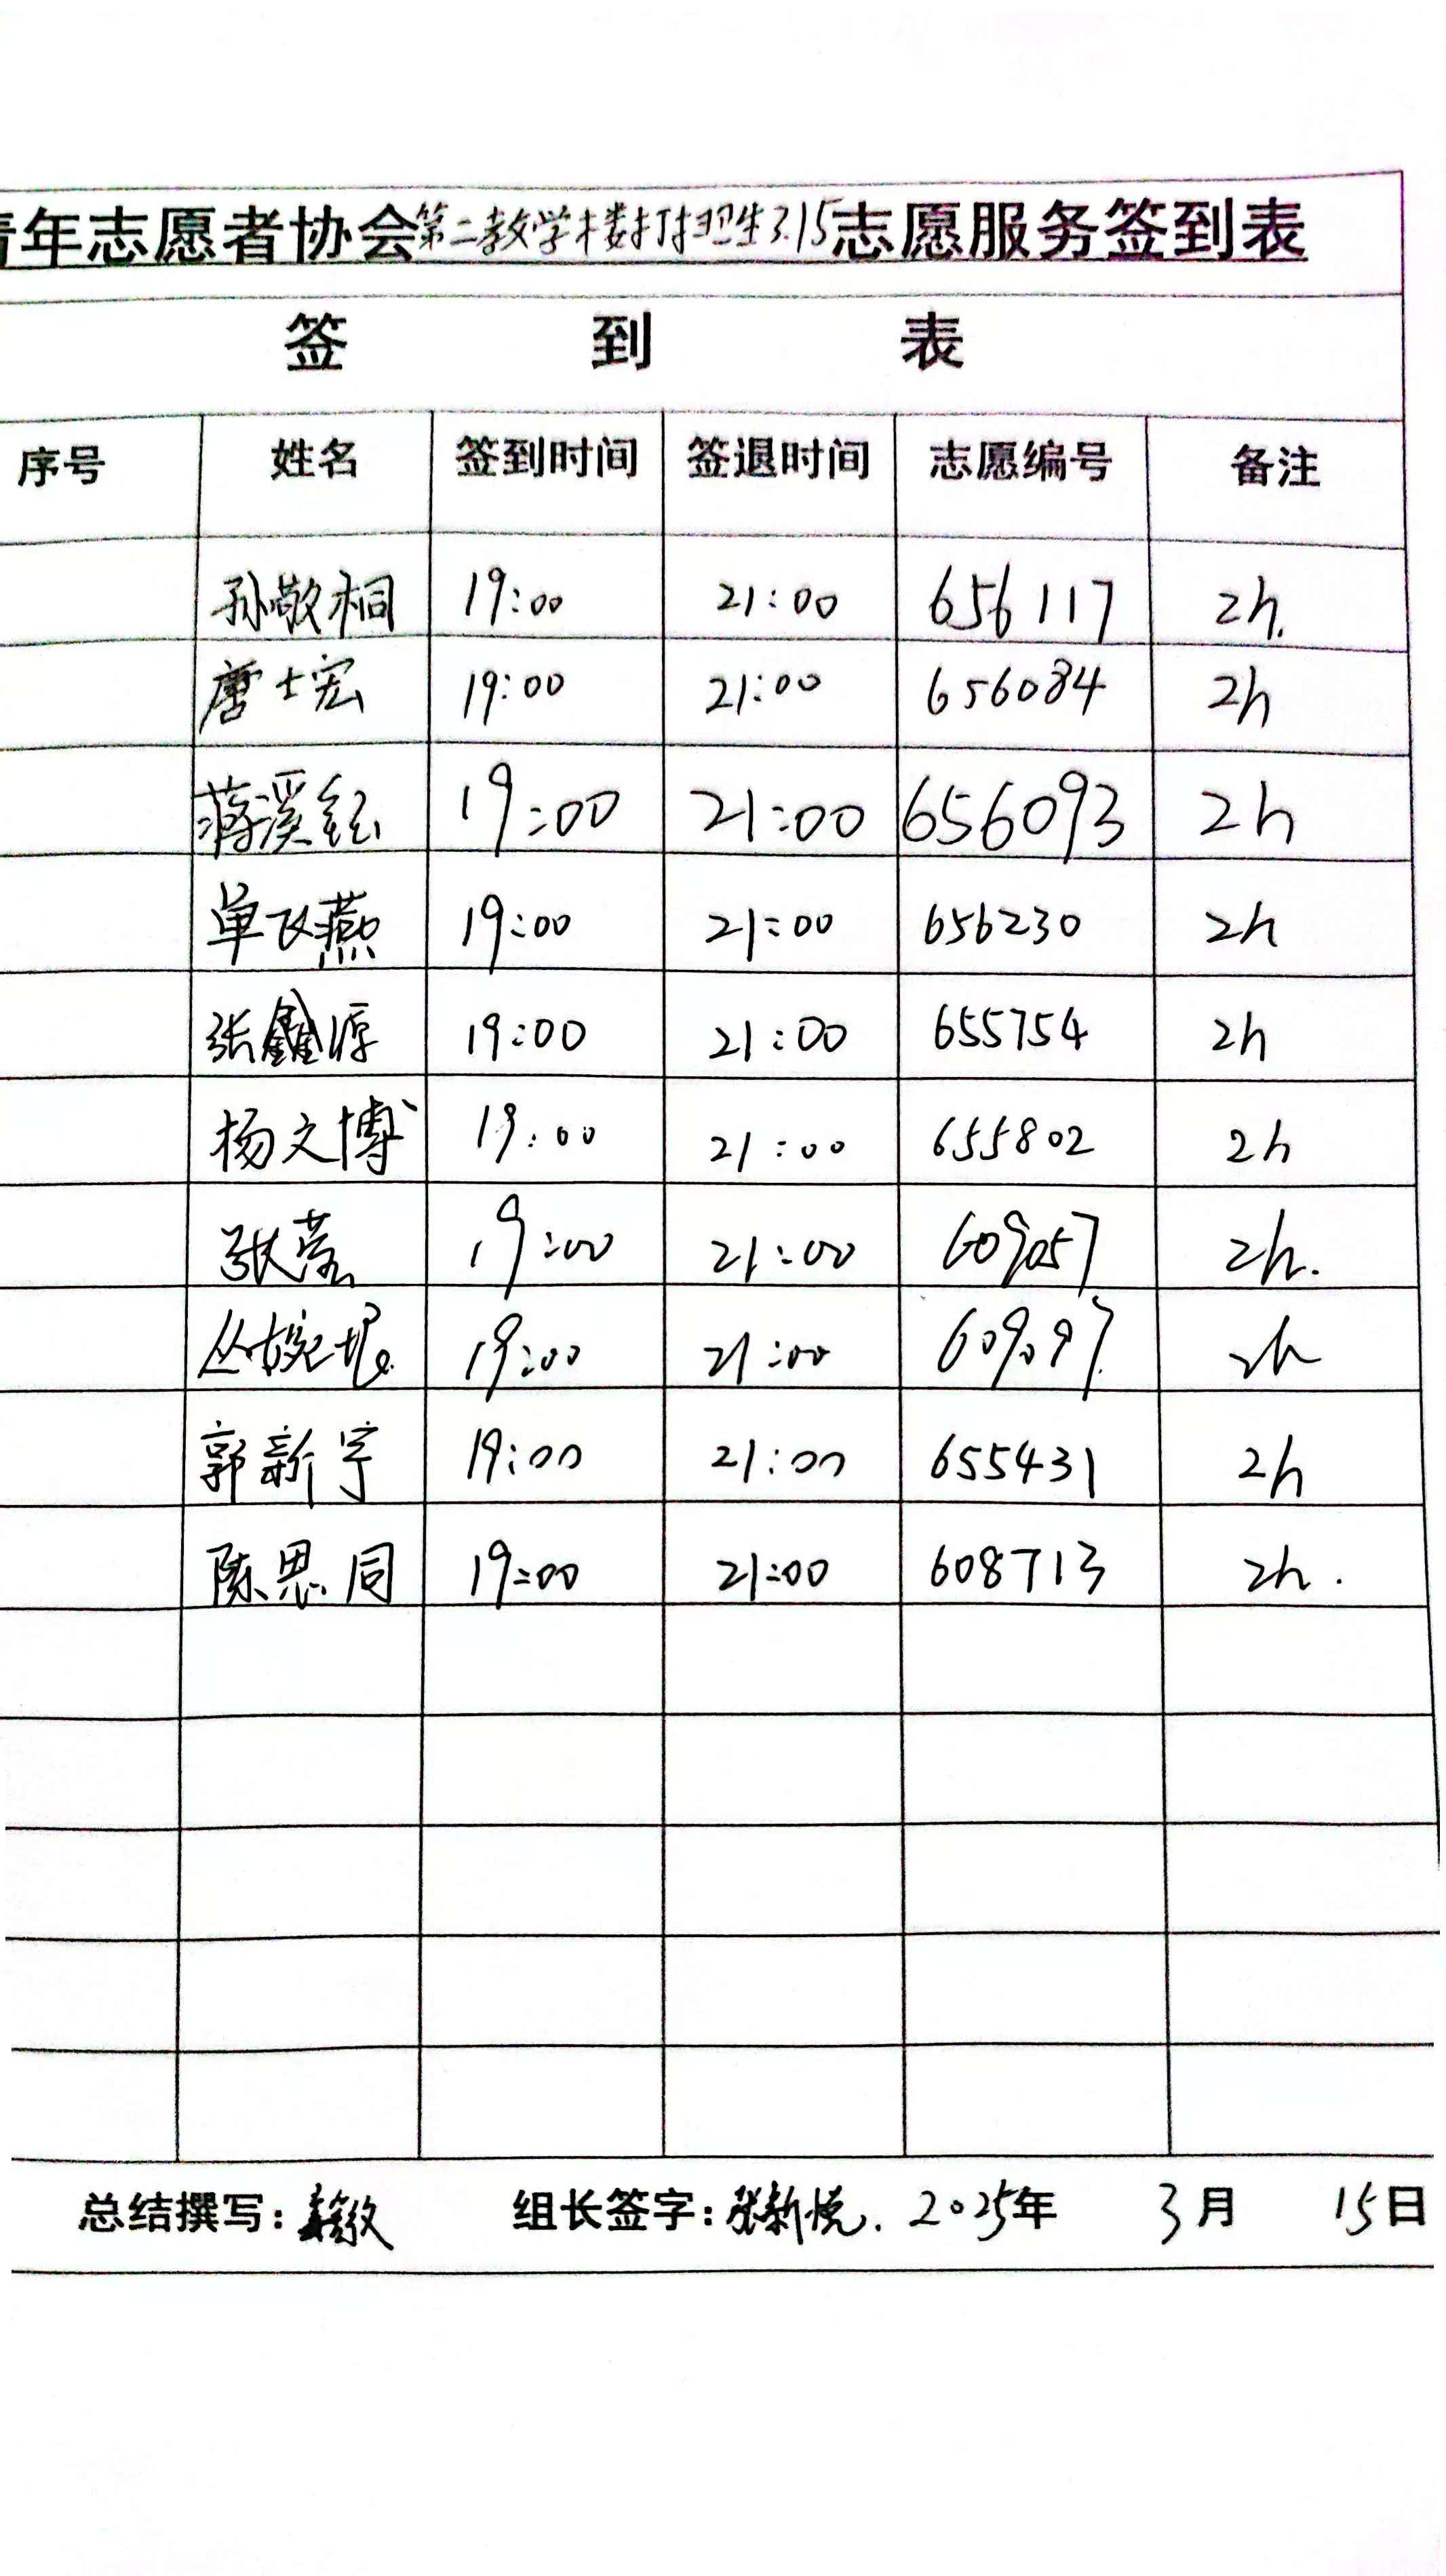 青年志愿者协会第二教学楼打扫卫生3.15志愿服务签到表
签 到 表
序号 姓名 签到时间 签退时间 志愿编号 备注
孙敬桐 19:00 21:00 656117 2h.
唐士宏 19:00 21:00 656084 2h
蒋溪 19:00 21:00 656093 2h
单飞燕 19:00 21:00 656230 2h
张鑫源 19:00 21:00 655754 2h
杨文博 19:00 21:00 655802 2h
张莹 19:00 21:00 609057 2h.
丛婉 19:00 21:00 609097 2h
郭新宇 19:00 21:00 655431 2h
陈思同 19:00 21:00 608713 2h.
总结撰写: 组长签字:张新悦. 2025年 3月 15日